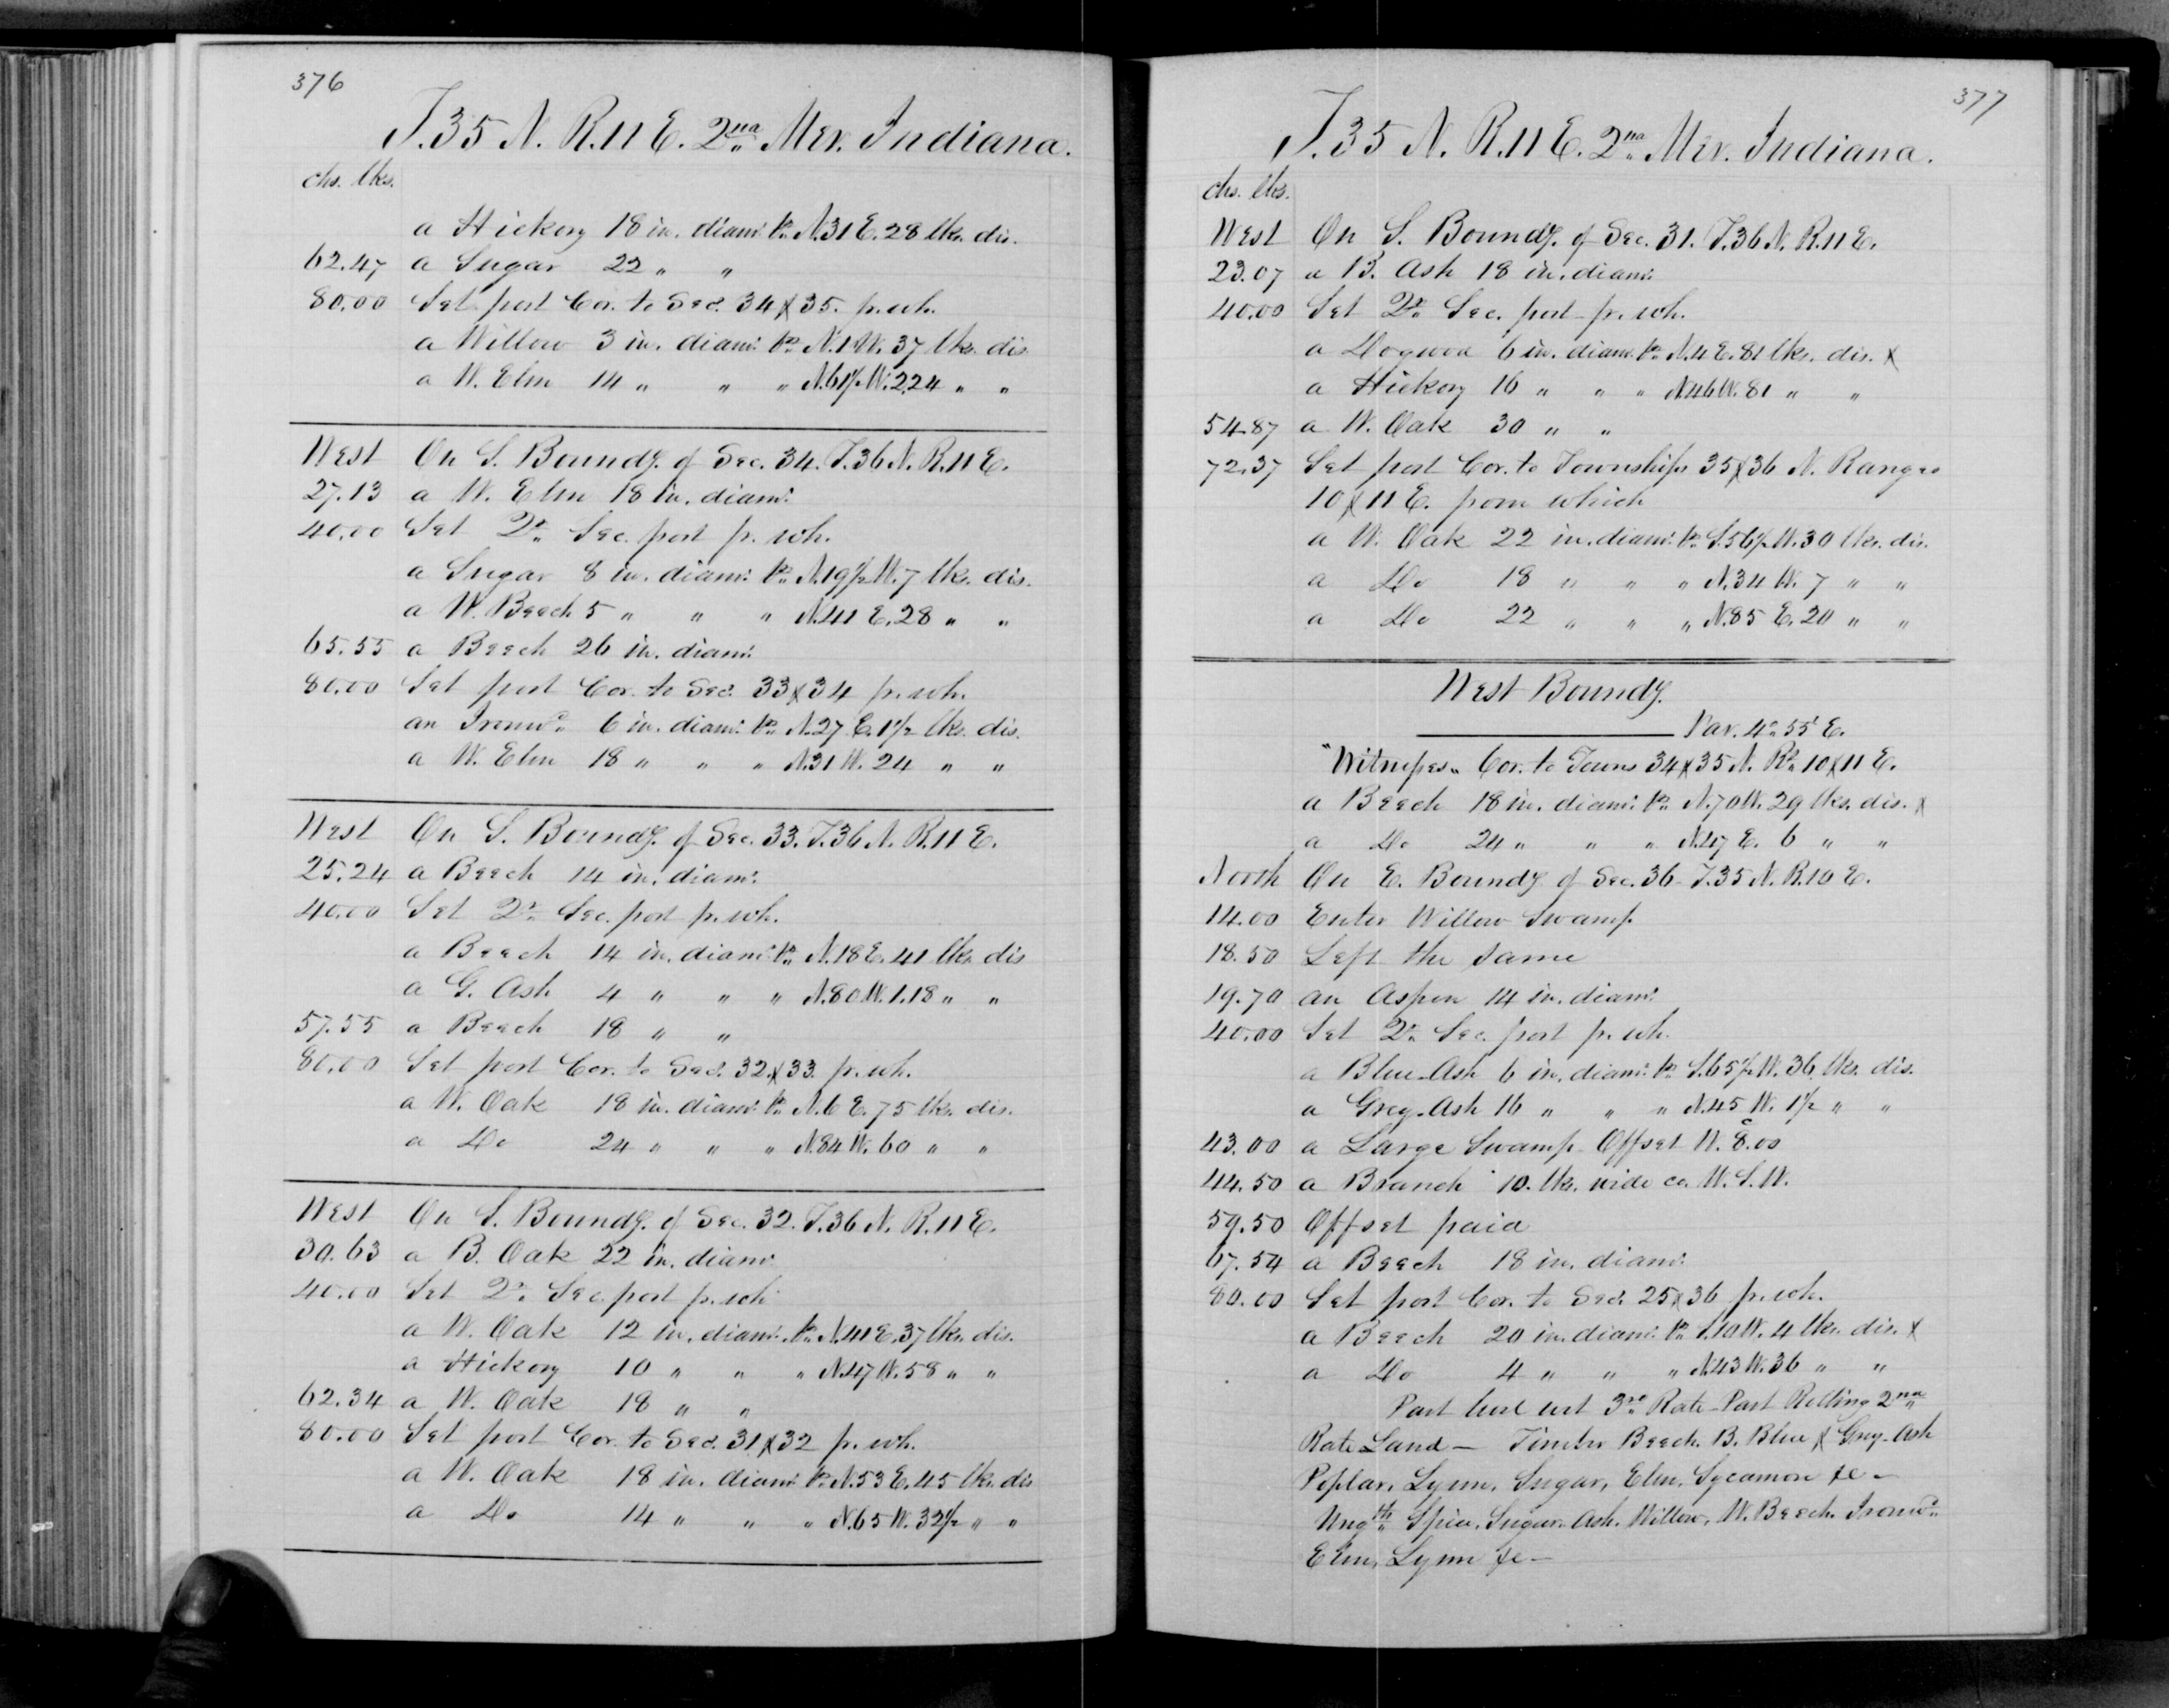 376
T.35 N. R.11 E. 2nd Mer. Indiana.
chs. lks.
a Hickory 18 in. diamr. bs. N.31 E. 28 lks. dis.
62.47 a Sugar 22 " "
80.00 Set post Cor. to Secs. 34 & 35. fr. wh.
a Willow 3 in. diamr. bs. N.1 W. 37 lks. dis.
a W. Elm 14 " " " N.61½ W. 224 " "
West On S. Boundy. of Sec. 34. T.36 N. R.11 E.
27.13 a W. Elm 18 in. diamr.
40.00 Set Qr. Sec. post fr. wh.
a Sugar 8 in. diamr. bs. N.19½ W. 7 lks. dis.
a W. Beech 5 " " " N.41 E. 28 " "
65.55 a Beech 26 in. diamr.
80.00 Set post Cor. to Secs. 33 & 34 fr. wh.
an Ironwd. 6 in. diamr. bs. N.27 E. 1½ lks. dis.
a W. Elm 18 " " " N.31 W. 24 " "
West On S. Boundy. of Sec. 33. T.36 N. R.11 E.
25.24 a Beech 14 in. diamr.
40.00 Set Qr. Sec. post fr. wh.
a Beech 14 in. diamr. bs. N.18 E. 41 lks. dis
a G. Ash 4 " " " N.80 W. 1.18 " "
57.55 a Beech 18 " "
80.00 Set post Cor. to Secs. 32 & 33. fr. wh.
a W. Oak 18 in. diamr. bs. N.6 E. 75 lks. dis.
a Do 24 " " " N.84 W. 60 " "
West On S. Boundy. of Sec. 32. T.36 N. R.11 E.
30.63 a B. Oak 22 in. diamr.
40.00 Set Qr. Sec. post fr. wh
a W. Oak 12 in. diamr. bs. N.41 E. 37 lks. dis.
a Hickory 10 " " " N.47 W. 58 " "
62.34 a W. Oak 18 " "
80.00 Set post Cor. to Secs. 31 & 32 fr. wh.
a W. Oak 18 in. diamr. bs. N.53 E. 45 lks. dis
a Do 14 " " " N.65 W. 32½ " "
377
T.35 N. R.11 E. 2nd Mer. Indiana.
chs. lks.
West On S. Boundy. of Sec. 31. T.36 N. R.11 E.
23.07 a B. Ash 18 in. diamr.
40.00 Set Qr. Sec. post fr. wh.
a Dogwood 6 in. diamr. bs. N.4 E. 81 lks. dis. &
a Hickory 16 " " " N.46 W. 81 " "
54.87 a W. Oak 30 " "
72.37 Set post Cor. to Townships 35 & 36 N. Ranges
10 & 11 E. from which
a W. Oak 22 in. diamr. bs. S.56½ W. 30 lks. dis.
a Do 18 " " " N.34 W. 7 " "
a Do 22 " " " N.85 E. 20 " "
West Boundy.
Var. 4° 55' E.
"Witness" Cor. to Towns 34 & 35 N. Rs. 10 & 11 E.
a Beech 18 in. diamr. bs. N.70 W. 29 lks. dis. &
a Do 24 " " " N.47 E. 6 " "
North On E. Boundy of Sec. 36 T.35 N. R.10 E.
14.00 Enter Willow Swamp
18.50 Left the same
19.70 an Aspen 14 in. diamr.
40.00 Set Qr. Sec. post fr. wh.
a Blue-Ash 6 in. diamr. bs. S.65½ W. 36 lks. dis.
a Grey-Ash 16 " " " N.45 W. 1½ " "
43.00 a Large Swamp Offset W. 8.00
44.50 a Branch 10. lks. wide co. W.S.W.
59.50 Offset paid
67.54 a Beech 18 in. diamr.
80.00 Set post Cor. to Secs. 25 & 36 fr. wh.
a Beech 20 in. diamr. bs. S.10 W. 4 lks. dis. &
a Do 4 " " " N.43 W. 36 " "
Part level wet 3rd Rate-Part Rolling 2nd
Rate Land — Timber Beech. B. Blue & Grey-Ash
Poplar, Lynn, Sugar, Elm, Sycamore &c —
Ungth. Spice, Sugar, Ash. Willow, W. Beech. Ironwd.
Elm, Lynn &c —